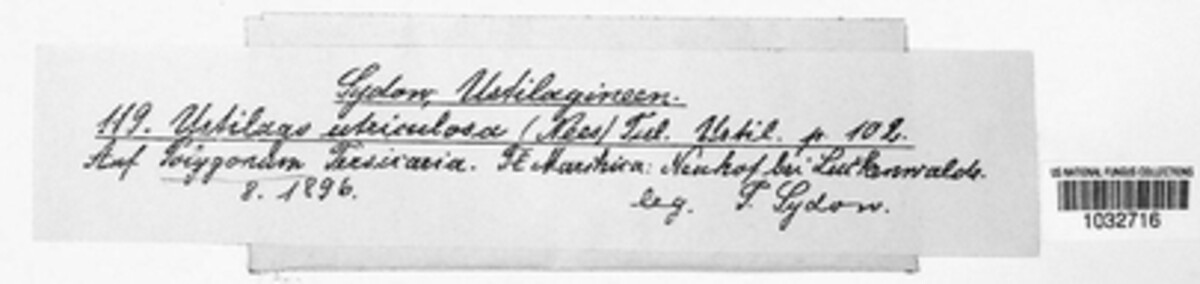 Sydow, Ustilagineen.
119. Ustilago utriculosa (Nees) Tul. Ustil. p. 102.
Auf Polygonum Persicaria. Fl. Marchica: Neuhof bei Luckenwalde.
8. 1896.
leg. P. Sydow.
US NATIONAL FUNGUS COLLECTIONS
1032716